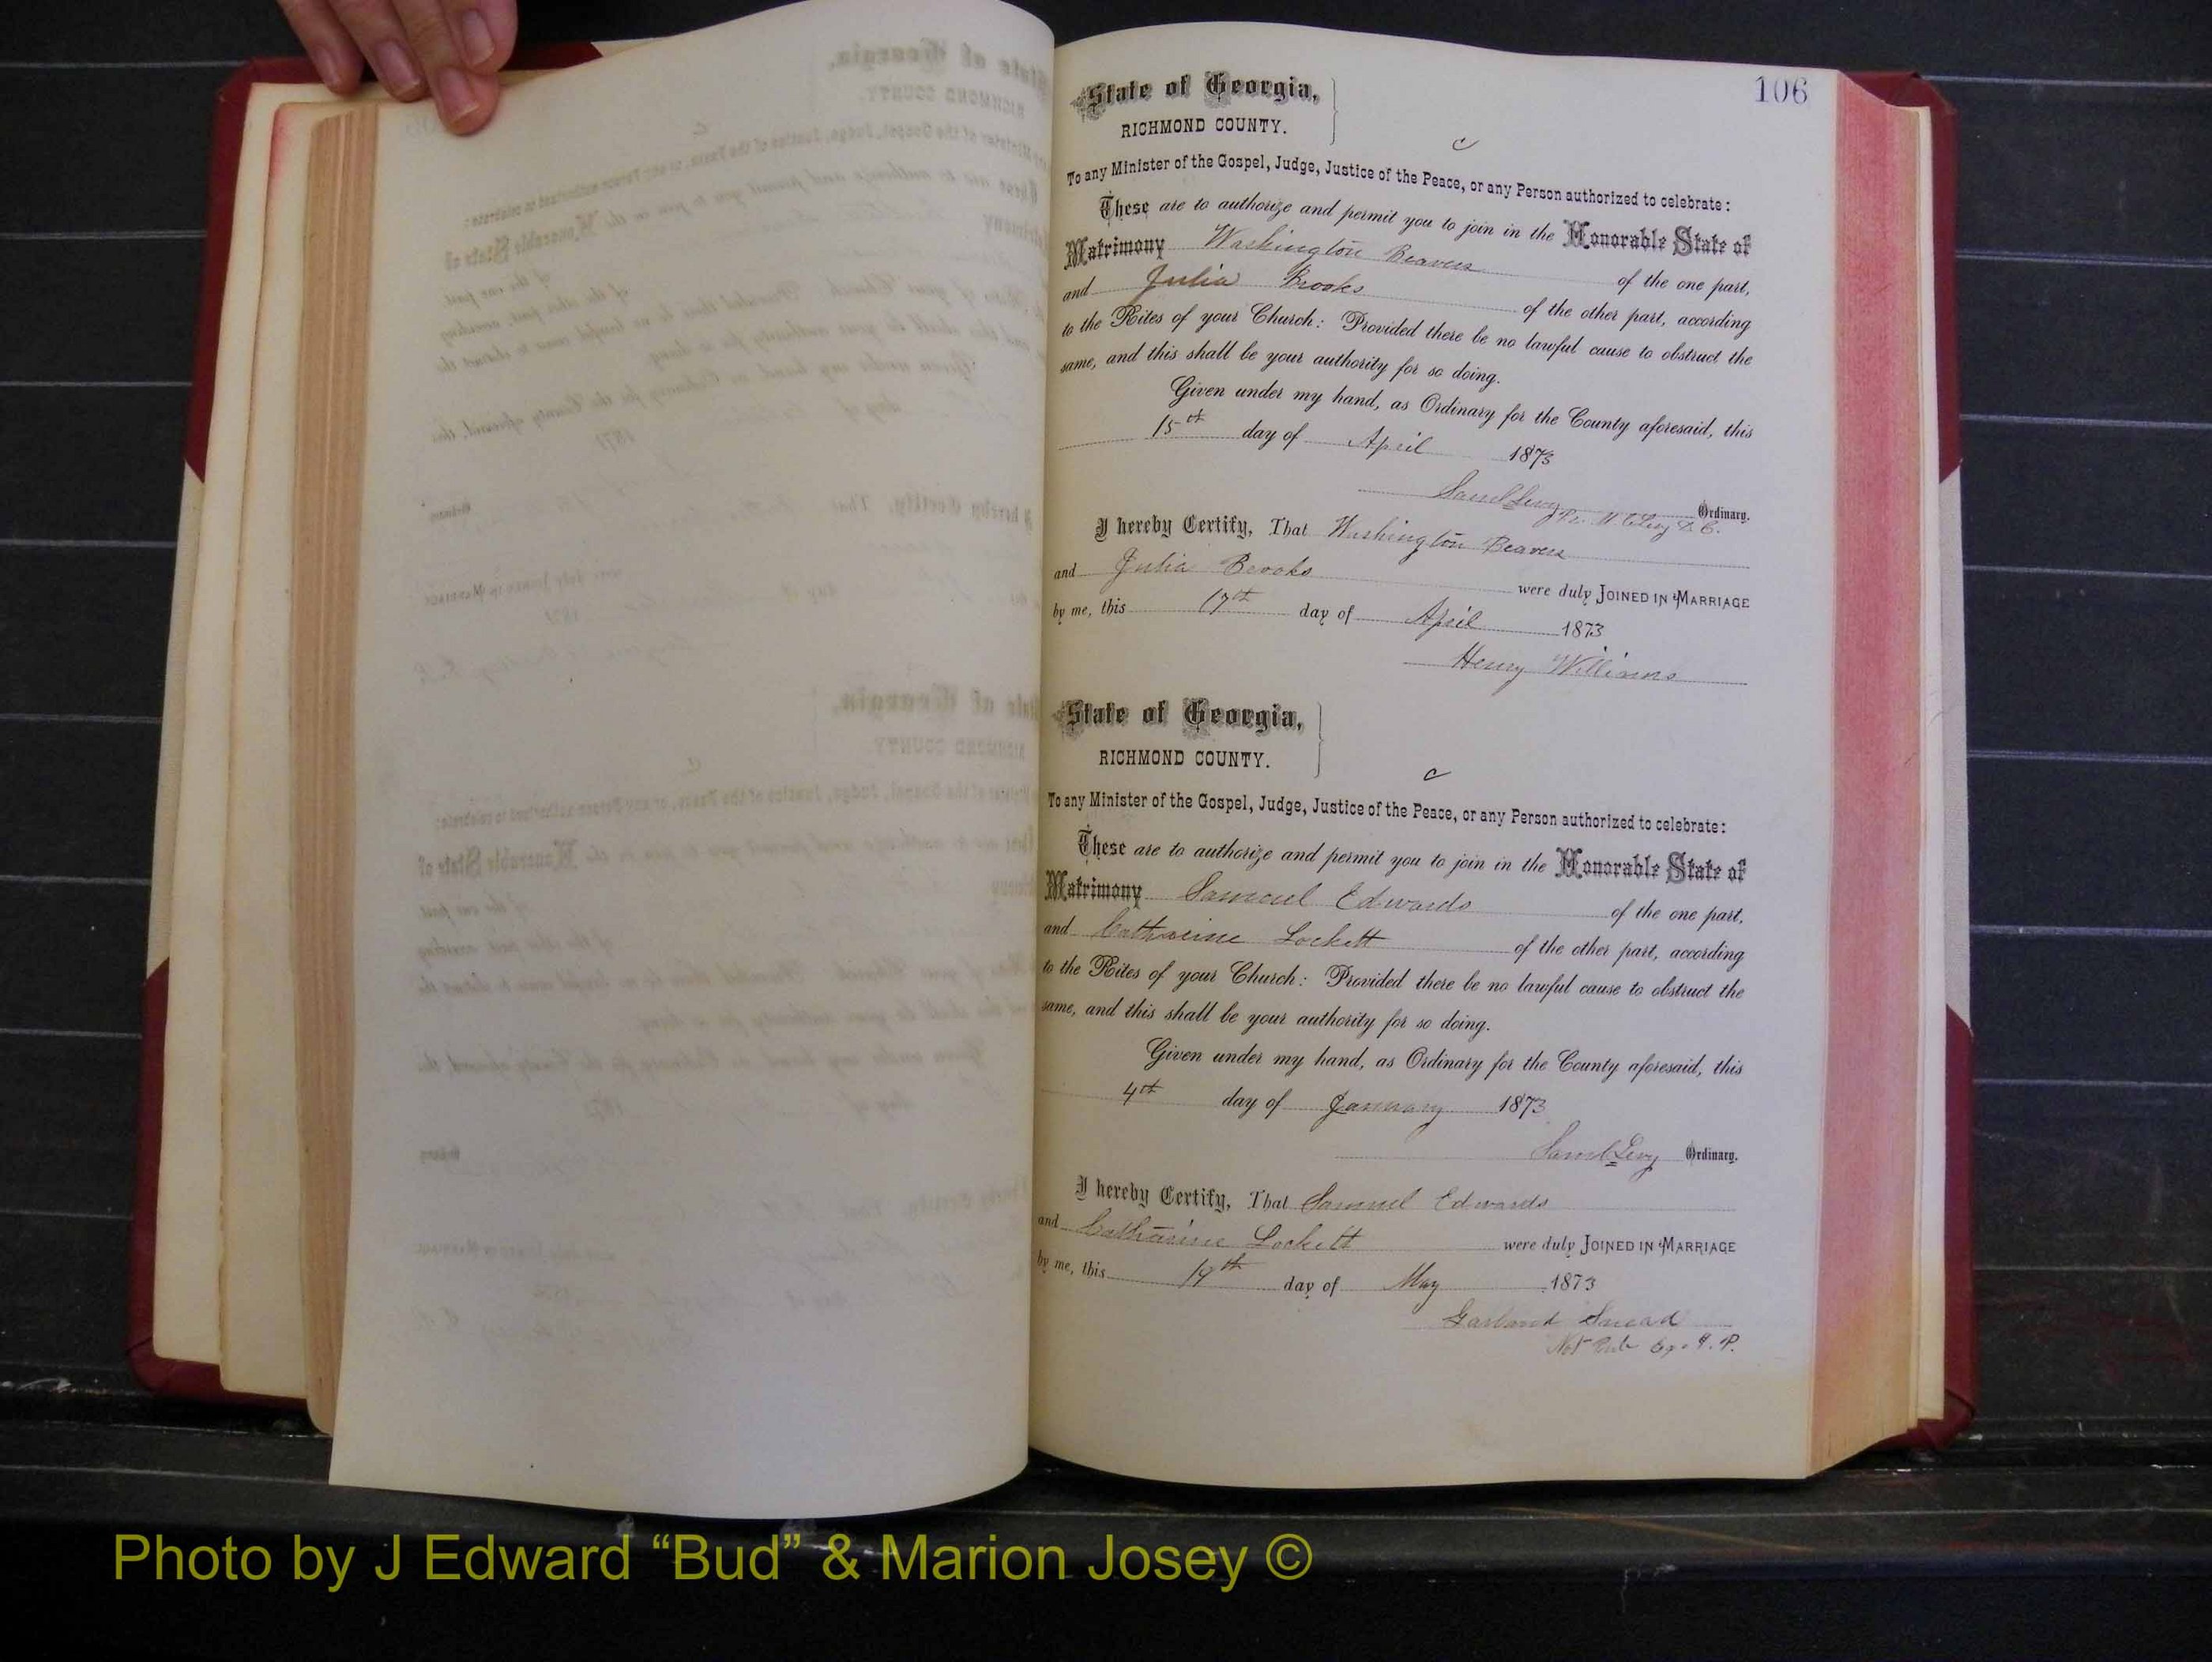 106
State of Georgia,
RICHMOND COUNTY.
C
To any Minister of the Gospel, Judge, Justice of the Peace, or any Person authorized to celebrate:
These are to authorize and permit you to join in the Honorable State of
Matrimony Washington Beavers of the one part,
and Julia Brooks of the other part, according
to the Rites of your Church: Provided there be no lawful cause to obstruct the
same, and this shall be your authority for so doing.
Given under my hand, as Ordinary for the County aforesaid, this
15th day of April 1873
Saml Levy Ordinary.
I hereby Certify, That Washington Beavers
and Julia Brooks were duly JOINED IN MARRIAGE
by me, this 17th day of April 1873
Henry Williams
State of Georgia,
RICHMOND COUNTY.
C
To any Minister of the Gospel, Judge, Justice of the Peace, or any Person authorized to celebrate:
These are to authorize and permit you to join in the Honorable State of
Matrimony Samuel Edwards of the one part,
and Catharine Lockett of the other part, according
to the Rites of your Church: Provided there be no lawful cause to obstruct the
same, and this shall be your authority for so doing.
Given under my hand, as Ordinary for the County aforesaid, this
4th day of January 1873
Saml Levy Ordinary.
I hereby Certify, That Samuel Edwards
and Catharine Lockett were duly JOINED IN MARRIAGE
by me, this day of May 1873
Garland Snead
Not Pub
Photo by J Edward “Bud” & Marion Josey ©